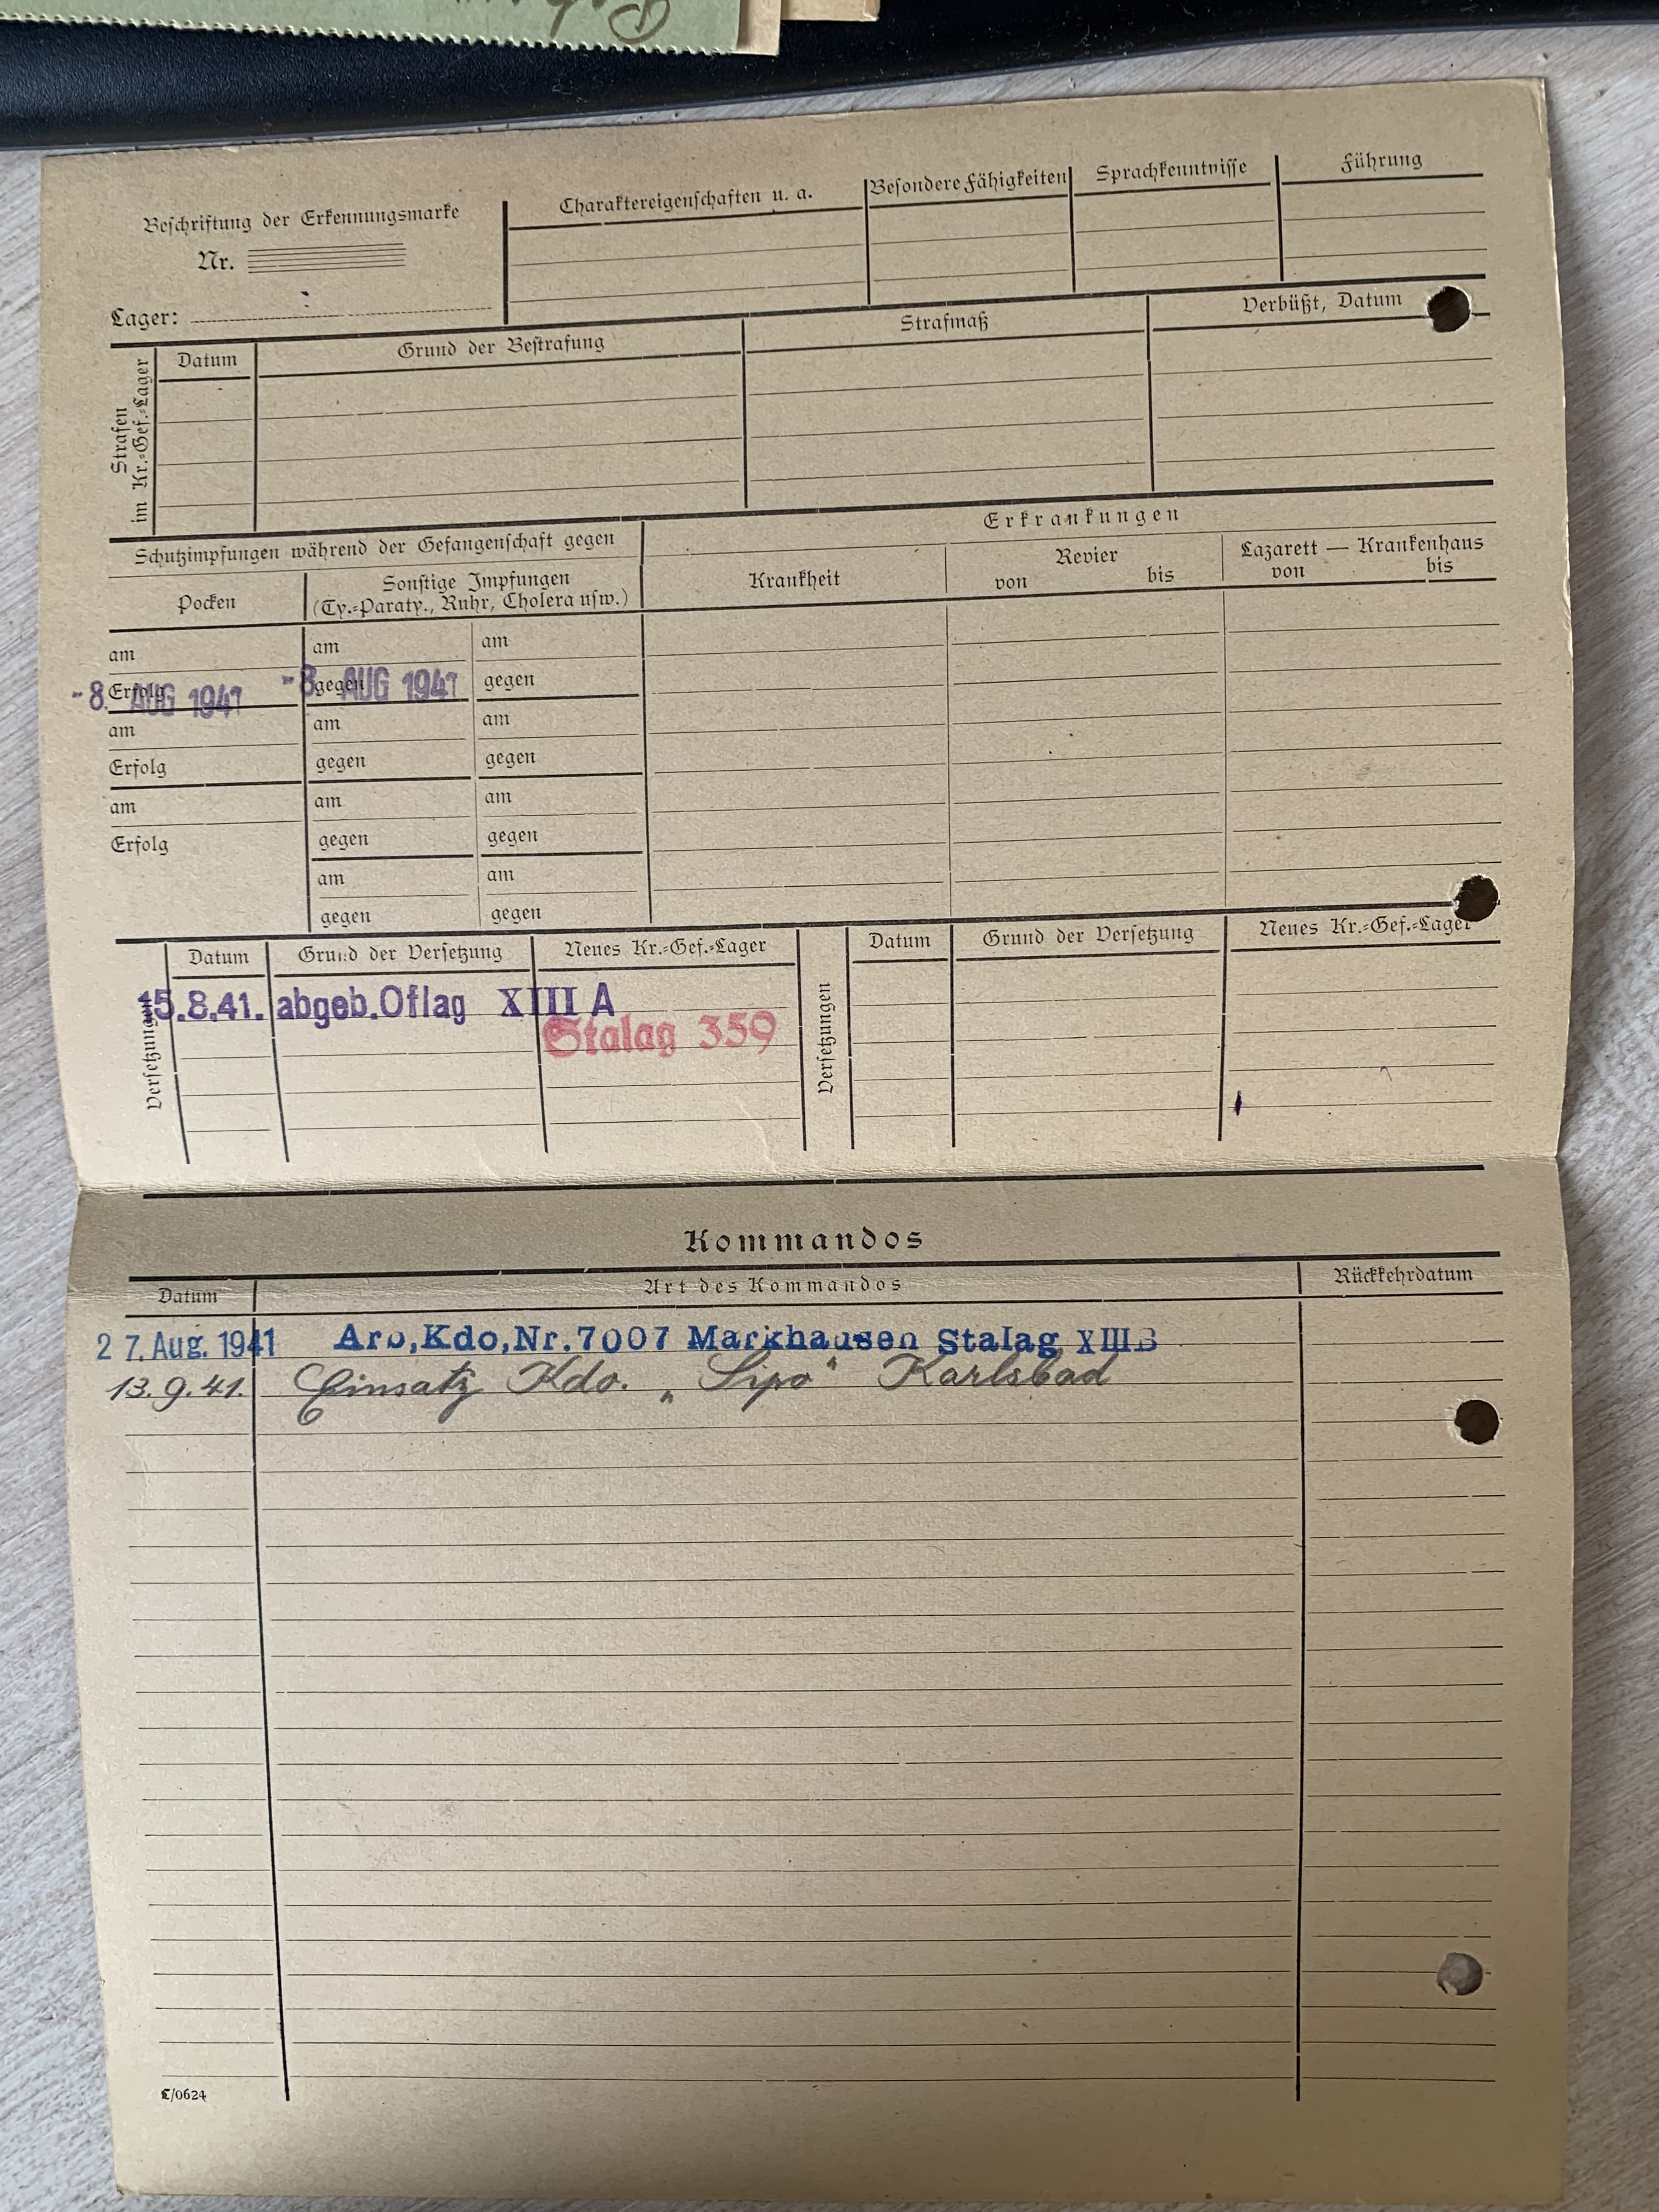 Beschriftung der Erkennungsmarke
Nr.
Lager:
Charaktereigenschaften u. a.
Besondere Fähigkeiten
Sprachkenntnisse
Führung
Strafen
im Kr.-Gef.-Lager
Datum
Grund der Bestrafung
Strafmaß
Verbüßt, Datum
Schutzimpfungen während der Gefangenschaft gegen
Pocken
Sonstige Impfungen
(Ty.-Paraty., Ruhr, Cholera usw.)
Erkrankungen
Krankheit
Revier
von bis
Lazarett — Krankenhaus
von bis
am am am
Erfolg gegen gegen
-8. AUG 1941 -8. AUG 1941
am am am
Erfolg gegen gegen
am am am
Erfolg gegen gegen
am am
gegen gegen
Versetzungen
Datum Grund der Versetzung Neues Kr.-Gef.-Lager
15.8.41. abgeb. Oflag XIII A
Stalag 359
Versetzungen
Datum Grund der Versetzung Neues Kr.-Gef.-Lager
Kommandos
Datum Art des Kommandos Rückkehrdatum
27. Aug. 1941 Arb,Kdo,Nr.7007 Markhausen Stalag XIIIB
13.9.41. Einsatz Kdo. „Sipo“ Karlsbad
C/0624